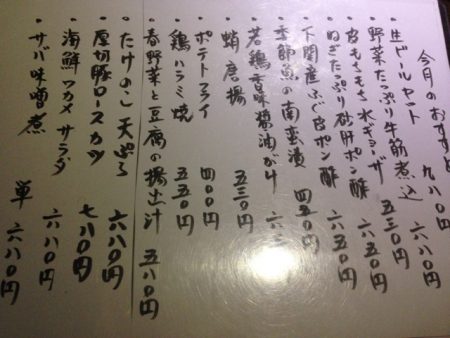 今月のおすすめ
・生ビールセット 九八〇円
・野菜たっぷり牛筋煮込 六八〇円
・皮もちもち水ギョーザ 五三〇円
・ねぎたっぷり砂肝ポン酢 六五〇円
・下関産ふぐ皮ポン酢 六五〇円
・季節魚の南蛮漬 四五〇円
・若鶏香味醤油がけ 六
・蛸唐揚 五三〇円
・ポテトフライ 四〇〇円
・鶏ハラミ焼 五五〇円
・春野菜と豆腐の揚出汁 五八〇円
・たけのこ天ぷら 六八〇円
・厚切豚ロースカツ 七八〇円
・海鮮ワカメサラダ 六八〇円
・サバ味噌煮 単 六八〇円